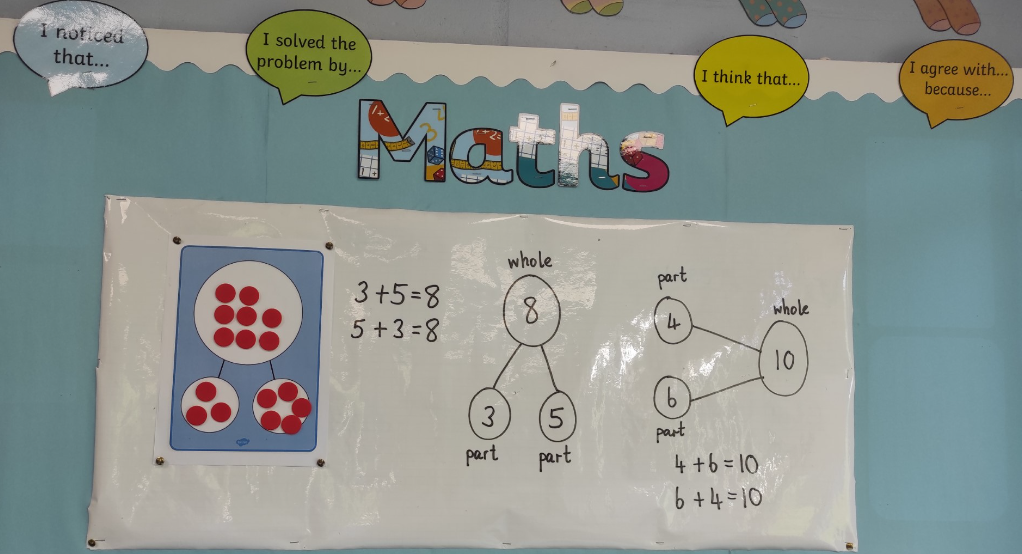 I noticed
that...
I solved the
problem by...
I think that...
I agree with...
because...
Maths
3+5=8
5+3=8
whole
8
3
5
part
part
part
4
whole
10
6
part
4+6=10
6+4=10